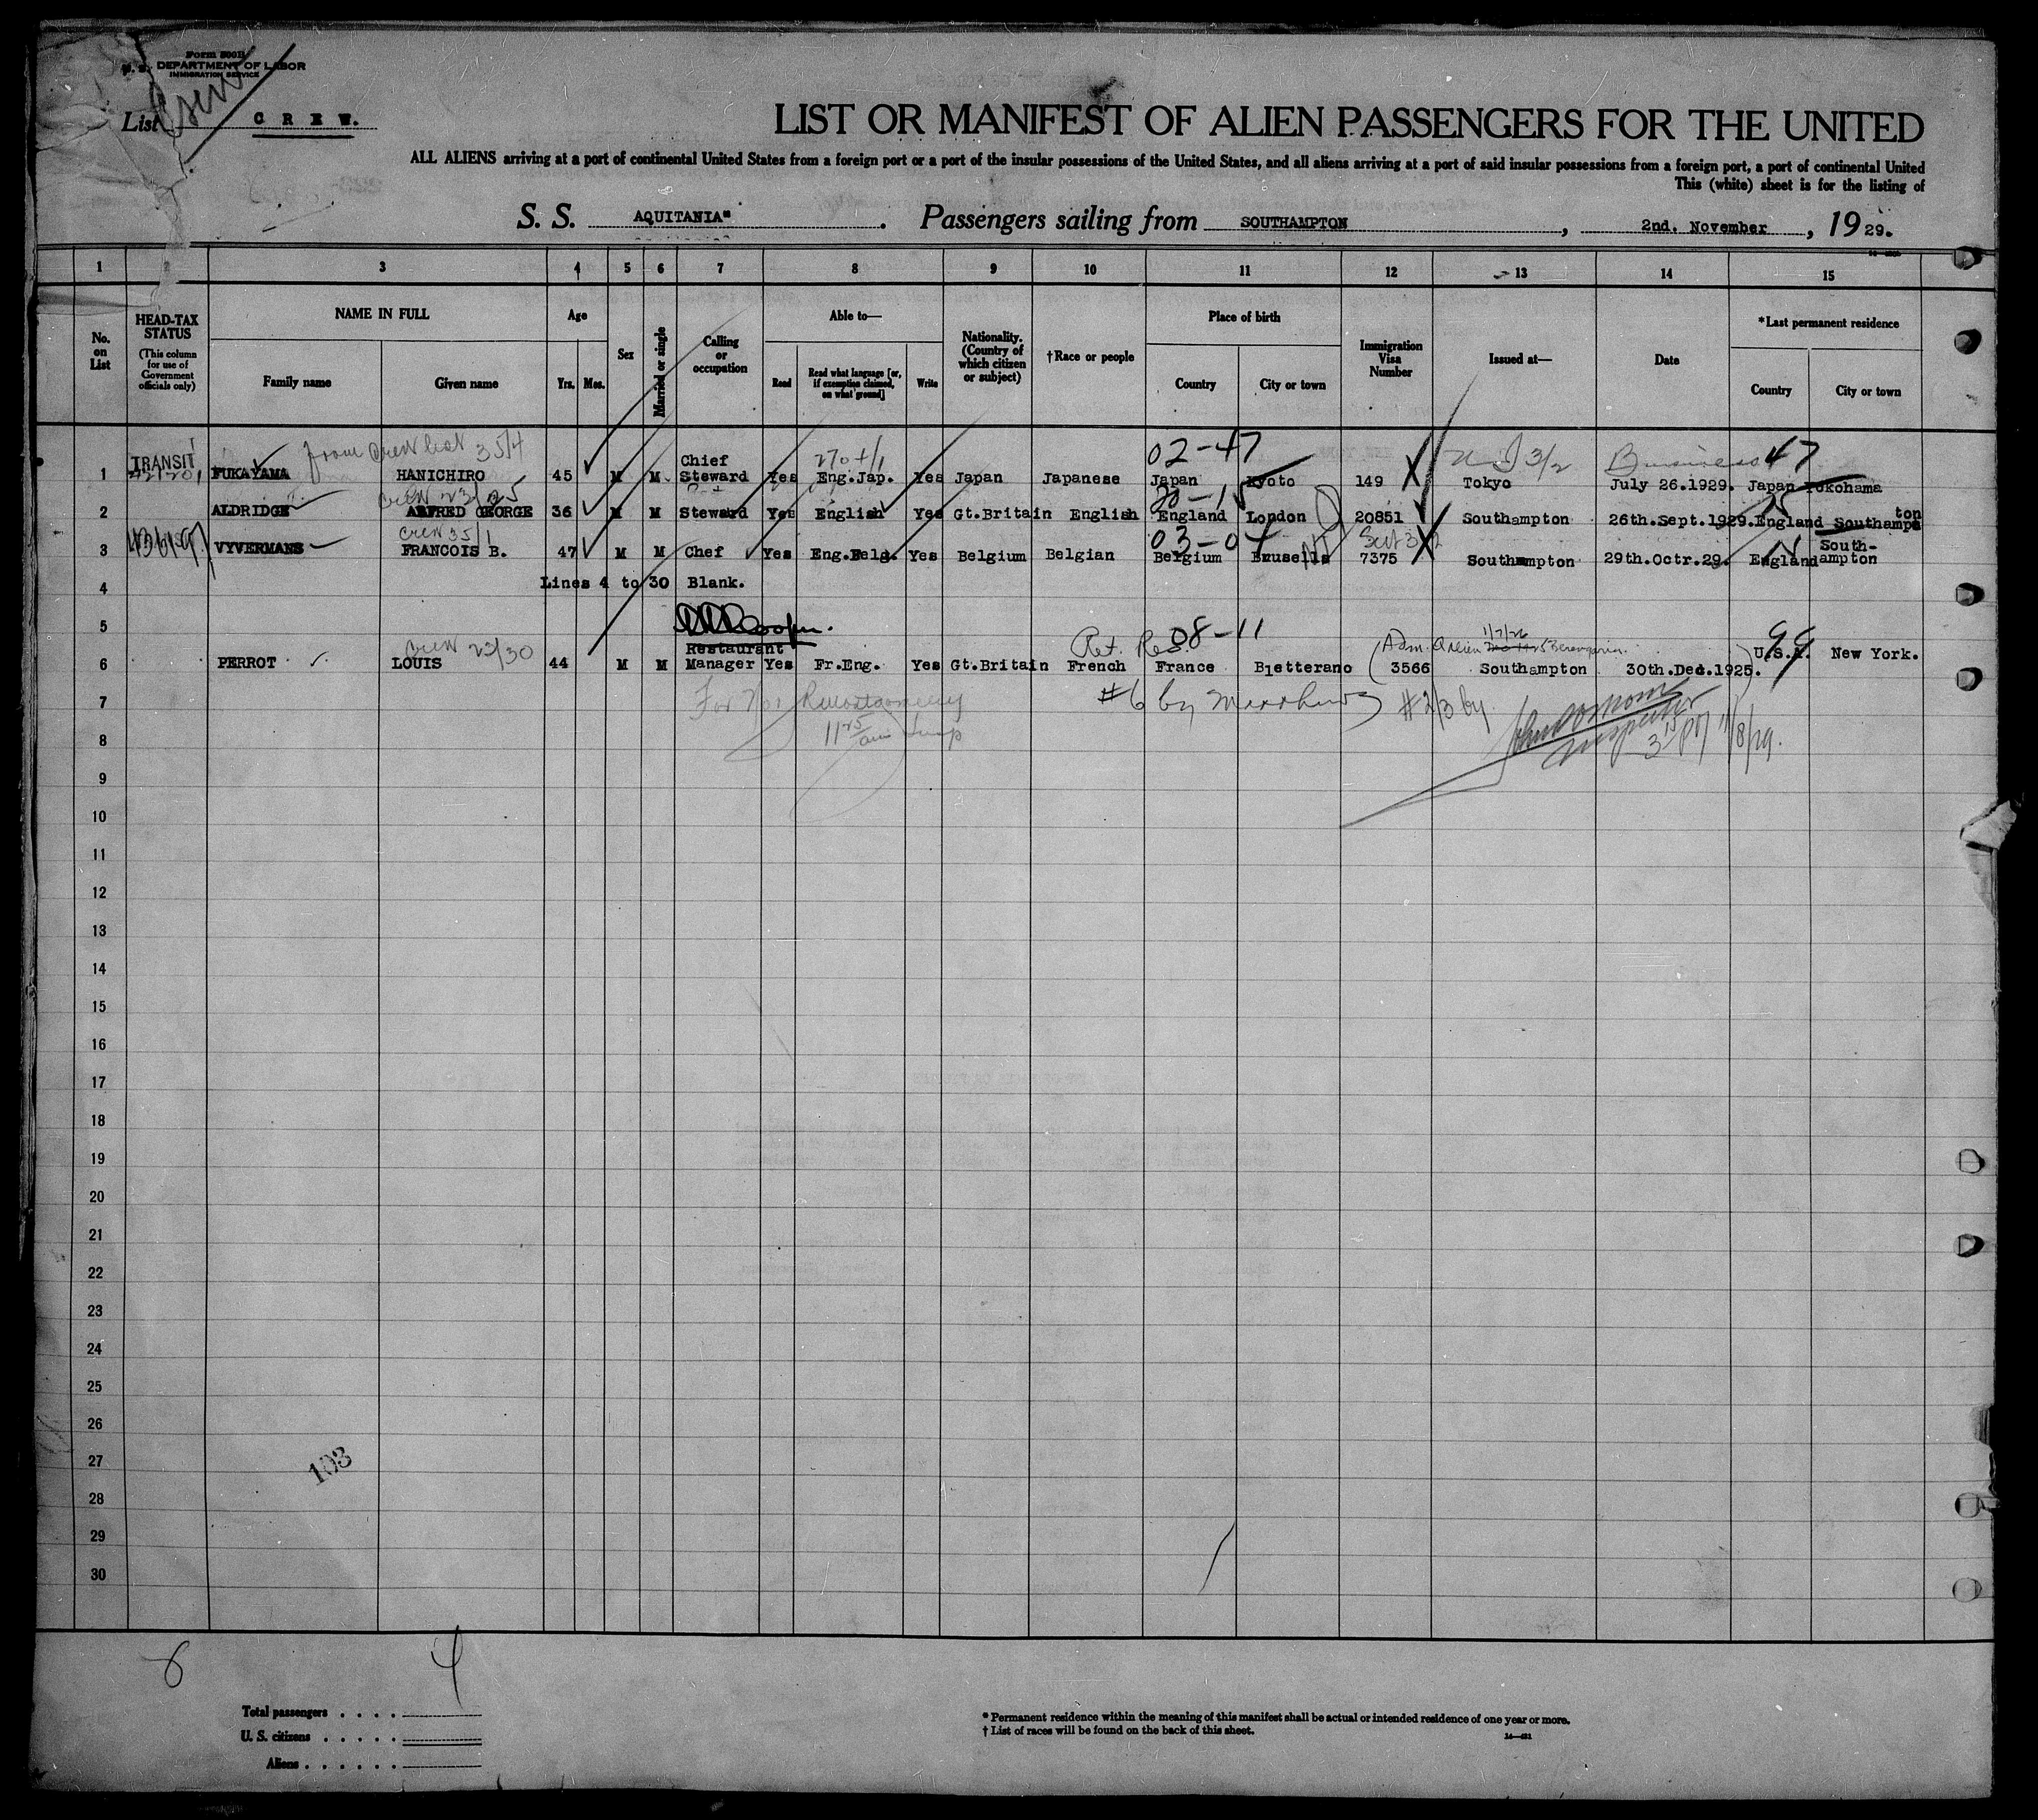 Form 500B
U. S. DEPARTMENT OF LABOR
IMMIGRATION SERVICE
List CREW.
Crew
LIST OR MANIFEST OF ALIEN PASSENGERS FOR THE UNITED
ALL ALIENS arriving at a port of continental United States from a foreign port or a port of the insular possessions of the United States, and all aliens arriving at a port of said insular possessions from a foreign port, a port of continental United
This (white) sheet is for the listing of
S. S. AQUITANIA". Passengers sailing from SOUTHAMPTON, 2nd. November, 1929.
1 2 3 4 5 6 7 8 9 10 11 12 13 14 15
No. on List
HEAD-TAX STATUS
(This column for use of Government officials only)
NAME IN FULL
Family name Given name
Age
Yrs. Mos.
Sex
Married or single
Calling or occupation
Able to—
Read
Read what language [or, if exemption claimed, on what ground]
Write
Nationality. (Country of which citizen or subject)
†Race or people
Place of birth
Country City or town
Immigration Visa Number
Issued at—
Date
*Last permanent residence
Country City or town
from Crew list 35/4 02-47 3/2 Business 47
1 TRANSIT FUKAYAMA HANICHIRO 45 M M Chief Steward Yes Eng.Jap. Yes Japan Japanese Japan Kyoto 149 Tokyo July 26.1929. Japan Yokohama
Crew 23/25
2 ALDRIDGE ALFRED GEORGE 36 M M Steward Yes English Yes Gt.Britain English England London 20851 Southampton 26th.Sept.1929. England Southampton
Crew 35/1 03-04
3 VYVERMANS FRANCOIS B. 47 M M Chef Yes Eng.Belg. Yes Belgium Belgian Belgium Brusells 7375 Southampton 29th.Octr.29. England South-ampton
4 Lines 4 to 30 Blank.
5
Crew 23/30 Ret. Res. 08-11 1/7/26 99
6 PERROT LOUIS 44 M M Restaurant Manager Yes Fr.Eng. Yes Gt.Britain French France Bletterano 3566 Southampton 30th.Dec.1925. U.S.A. New York.
7 #6 by #2/3 by
8 11/8/29.
9
10
11
12
13
14
15
16
17
18
19
20
21
22
23
24
25
26
27
103
28
29
30
4
Total passengers
U. S. citizens
Aliens
* Permanent residence within the meaning of this manifest shall be actual or intended residence of one year or more.
† List of races will be found on the back of this sheet.